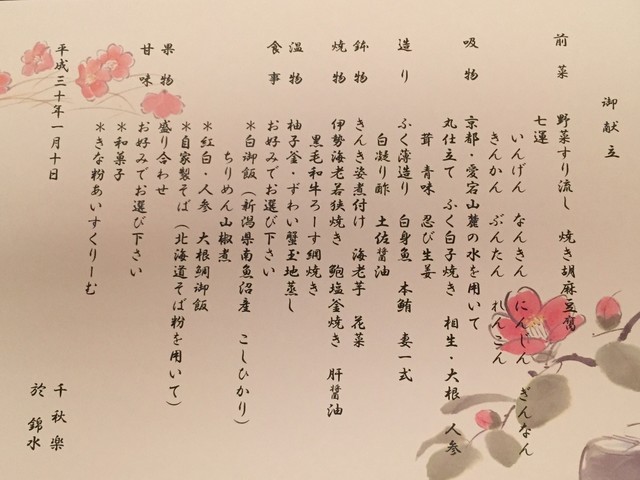 御献立
前菜
野菜すり流し 焼き胡麻豆腐
七運
いんげん なんきん にんじん ぎんなん
きんかん ぶんたん れんこん
吸物
京都・愛宕山麓の水を用いて
丸仕立て ふく白子焼き 相生・大根 人参
茸 青味 忍び生姜
造り
ふく薄造り 白身魚 本鮪 妻一式
白凝り酢 土佐醤油
鉢物
きんき姿煮付け 海老芋 花菜
焼物
伊勢海老若狭焼き 鮑塩釜焼き 肝醤油
黒毛和牛ろーす網焼き
温物
柚子釜・ずわい蟹玉地蒸し
食事
お好みでお選び下さい
＊白御飯（新潟県南魚沼産 こしひかり）
ちりめん山椒煮
＊紅白・人参 大根鯛御飯
＊自家製そば（北海道そば粉を用いて）
果物
盛り合わせ
甘味
お好みでお選び下さい
＊和菓子
＊きな粉あいすくりーむ
平成三十年一月十日
千秋楽
於 錦水